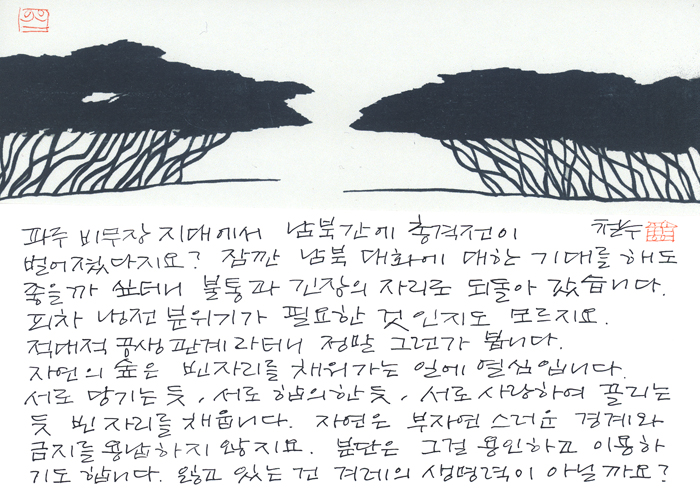 파주 비무장 지대에서 남북간에 총격전이 철수
벌어졌다지요? 잠깐 남북 대화에 대한 기대를 해도
좋을까 싶더니 불통과 긴장의 자리로 되돌아 갔습니다.
피차 냉전 분위기가 필요한 것 인지도 모르지요.
적대적 공생 관계라더니 정말 그런가 봅니다.
자연의 숲은 빈자리를 채워가는 일에 열심입니다.
서로 당기는 듯, 서로 합의한 듯, 서로 사랑하여 끌리는
듯 빈 자리를 채웁니다. 자연은 부자연 스러운 경계와
금지를 용납하지 않지요. 분단은 그걸 용인하고 이용하
기도 합니다. 잃고 있는 건 겨레의 생명력이 아닐까요?